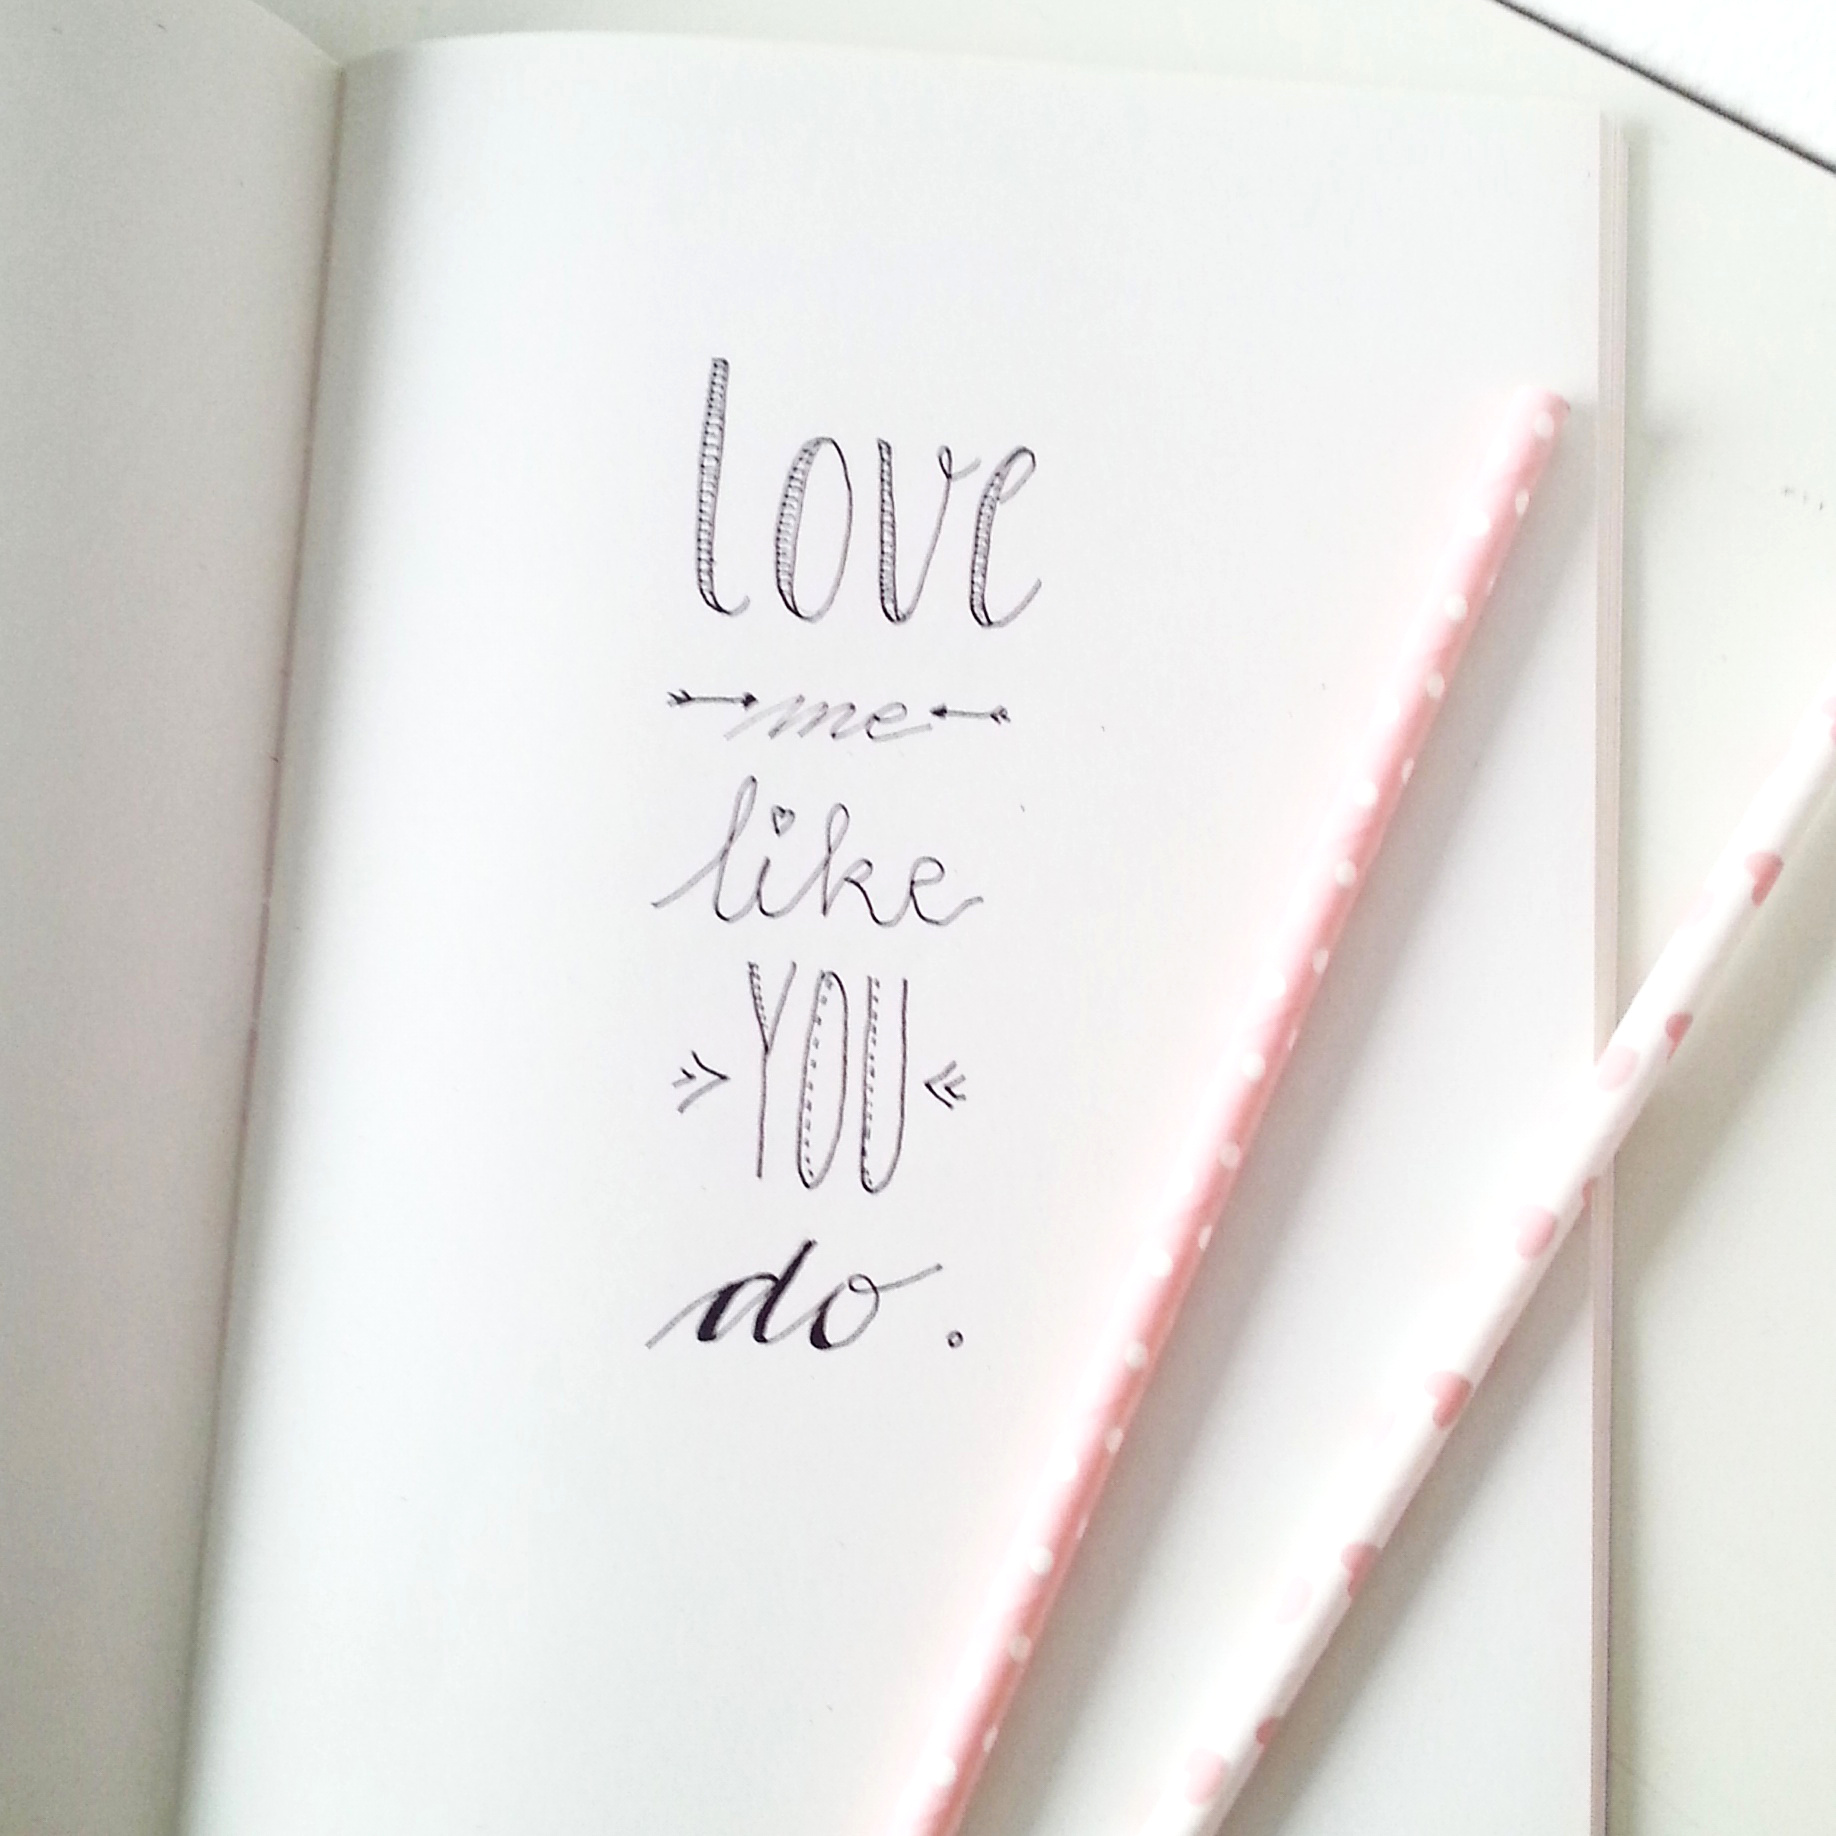 love
me
like
YOU
do.